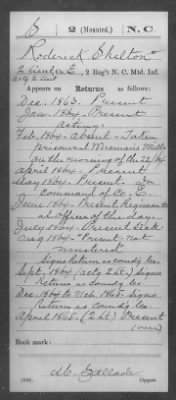 S | 2 (Mounted.) | N.C.
Roderick Shelton
2 Lieut, Co. E, 2 Reg't N. C. Mtd. Inf.
actg 2 Lieut
Appears on Returns as follows:
Dec. 1863. Present
Jan. 1864 - Present
Feb. 1864 - absent - Taken
prisoner at
on the morning of the 22/64
April 1864 - Present
May 1864 - Present - In
command of Co. E.
June 1864 - Present Regimental
Officer of the day.
July 1864 - Present Sick
Aug 1864 - Present - not
mustered
Signs Return as comdg Co
Sept. 1864 (actg 2 Lt.) Signs
Return as comdg Co
Dec. 1864 to Mch. 1865. Signs
Returns as comdg Co
April 1865. (2 Lt.) Present
(over)
Book mark:
(546)
Copyist.